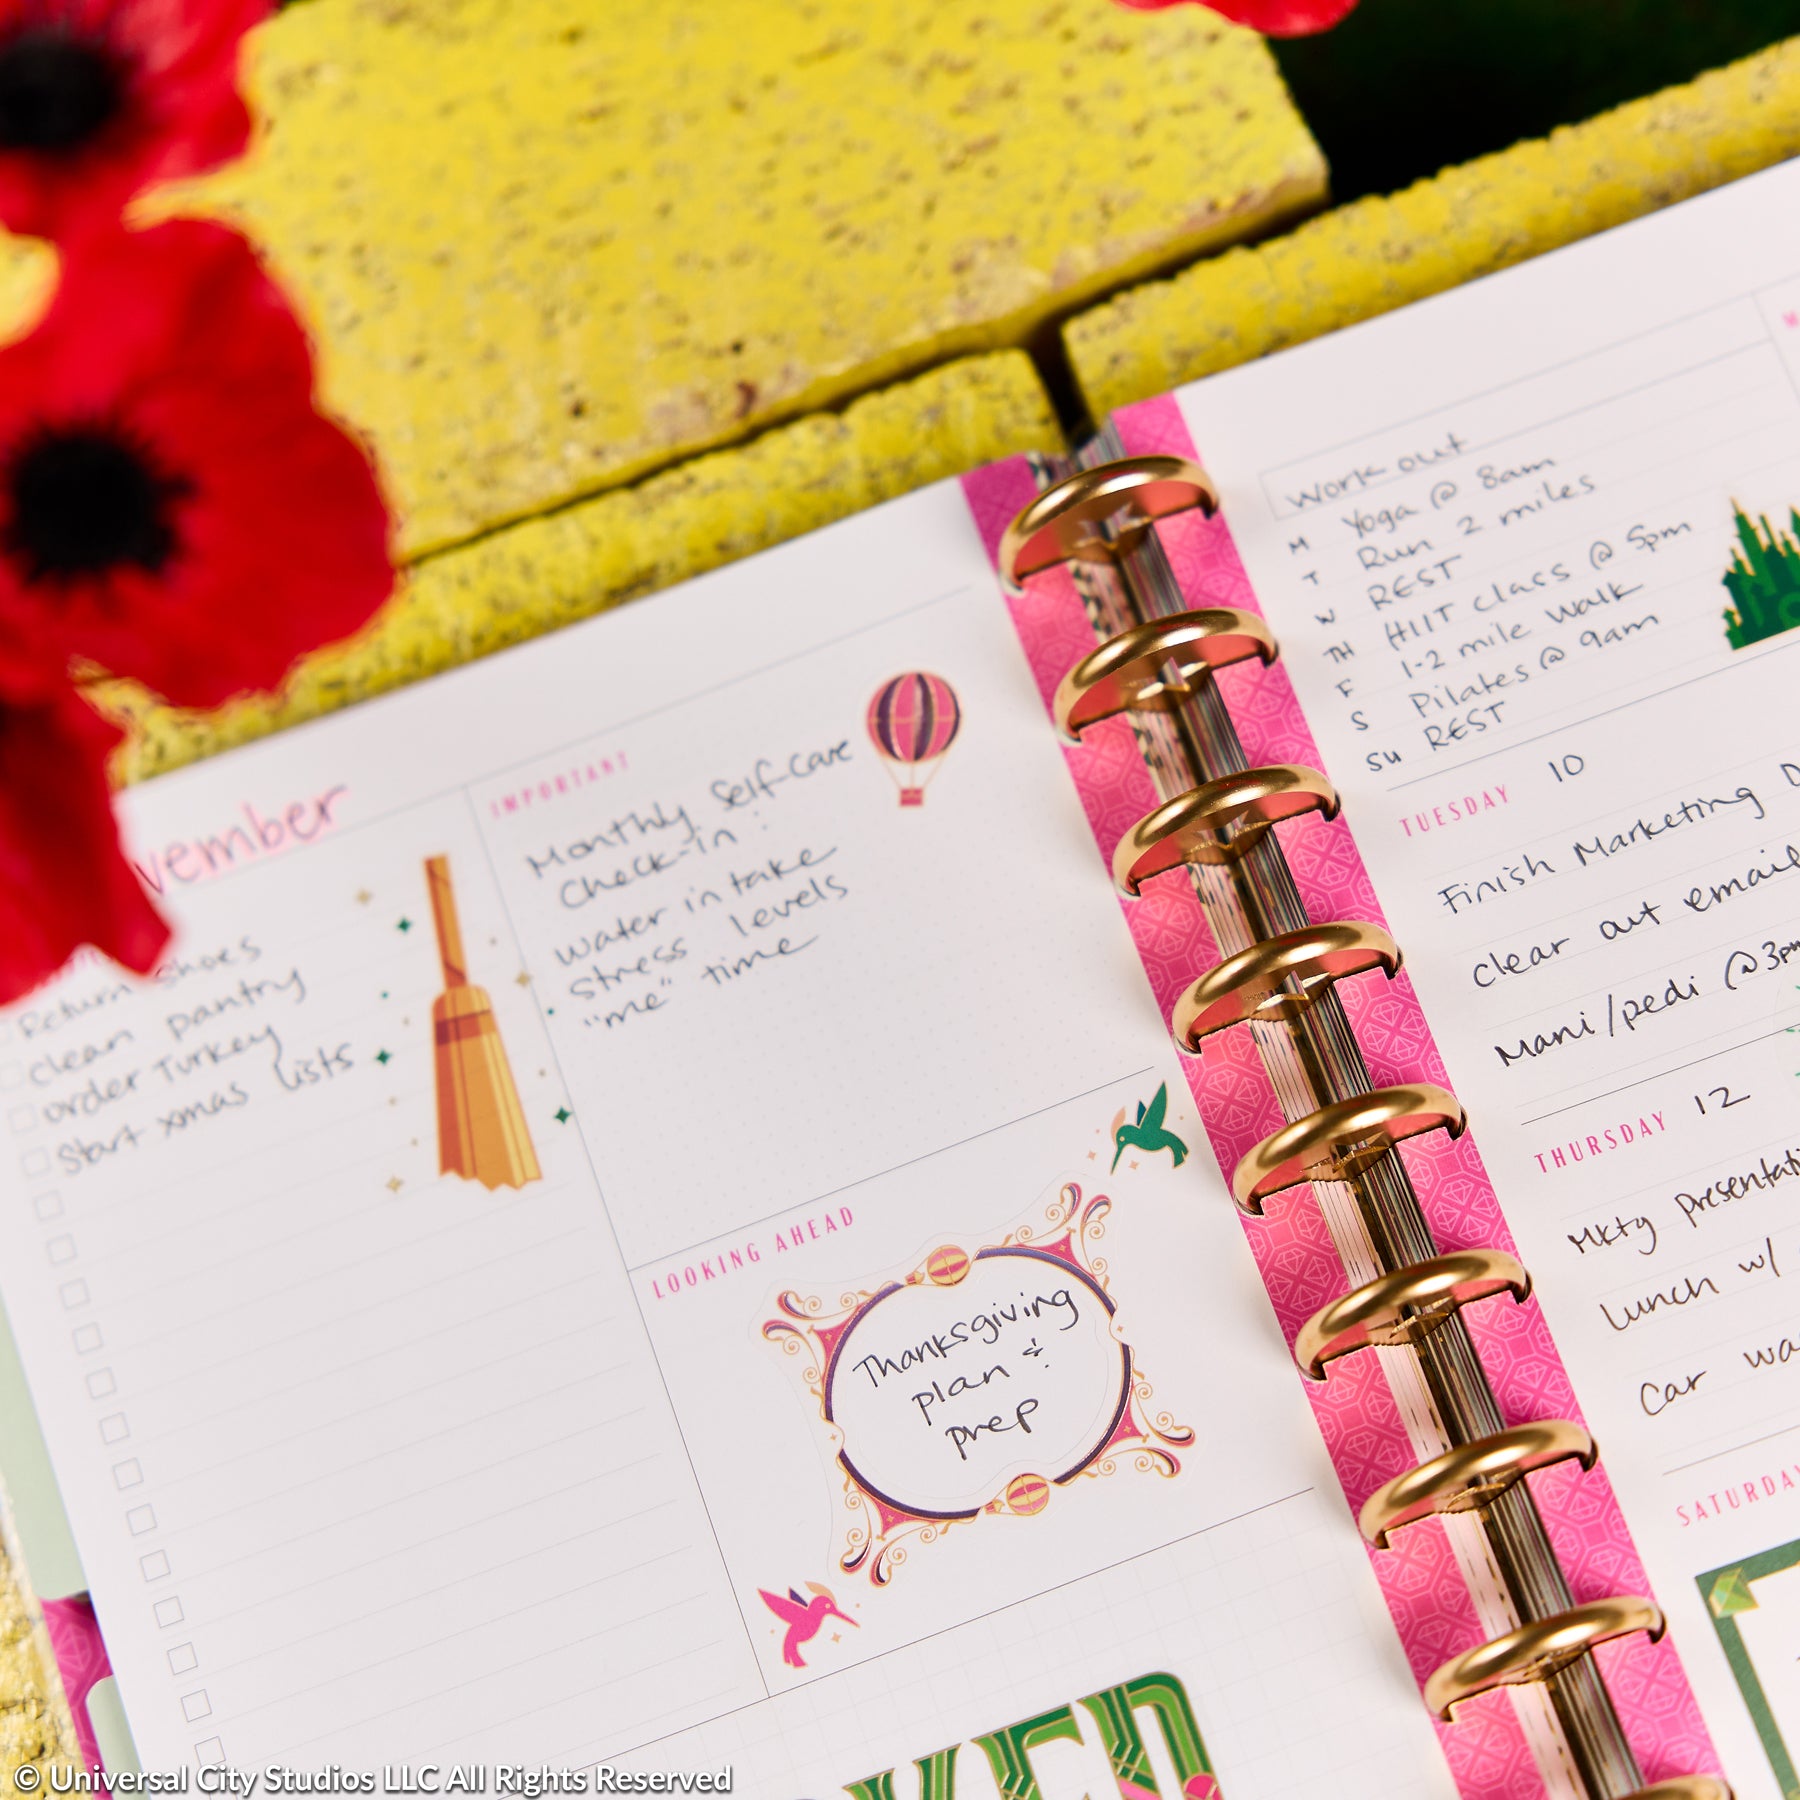 vember
Return shoes
clean pantry
order Turkey
Start xmas lists
IMPORTANT
Monthly Self-Care
Check-in:
Water intake
Stress levels
"me" time
LOOKING AHEAD
Thanksgiving
plan &
prep
KED
Work out
M Yoga @ 8am
T Run 2 miles
W REST
TH HIIT class @ 5pm
F 1-2 mile walk
S Pilates @ 9am
SU REST
TUESDAY 10
Finish Marketing D
Clear out email
Mani/pedi @3pm
THURSDAY 12
Mktg presentati
Lunch w/
Car wa
SATURDAY
© Universal City Studios LLC All Rights Reserved